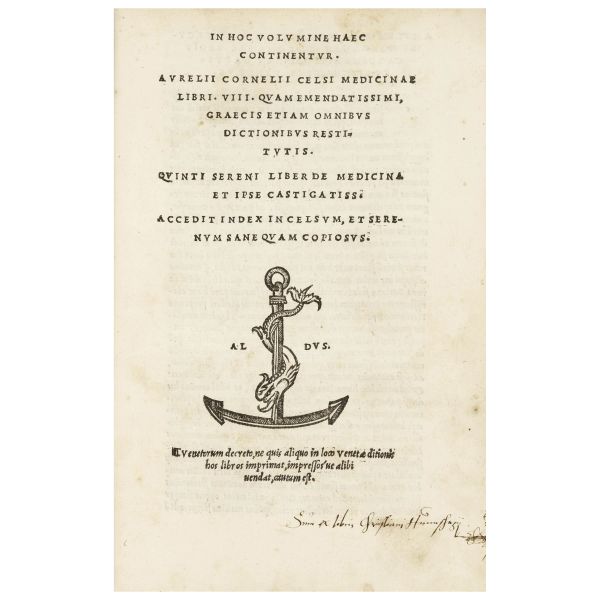 IN HOC VOLVMINE HAEC
CONTINENTVR.
AVRELII CORNELII CELSI MEDICINAE
LIBRI. VIII. QVAM EMENDATISSIMI,
GRAECIS ETIAM OMNIBVS
DICTIONIBVS RESTI-
TVTIS.
QVINTI SERENI LIBER DE MEDICINA
ET IPSE CASTIGATISS.
ACCEDIT INDEX IN CELSVM, ET SERE-
NVM SANE QVAM COPIOSVS.
AL DVS.
Venetorum decreto, ne quis aliquo in loco Venetæ ditionis
hos libros imprimat, impressos ue alibi
uendat, cautum est.
Sum ex libris Christiani